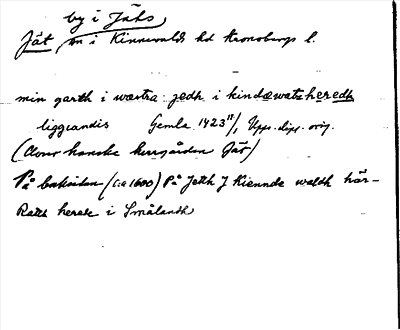 by i Jäts
Jät sn i Kinnevalds hd Kronobergs l.
min garth i wæstra jædh i kindæwatzheredh
liggiandis Gemla 1423 17/1 Upps. dipl. orig.
(Avser kanske herrgården Jät)
På baksidan (c:a 1600) På Jeth J Kiennde waldh här-
Rades herede i Smålandh